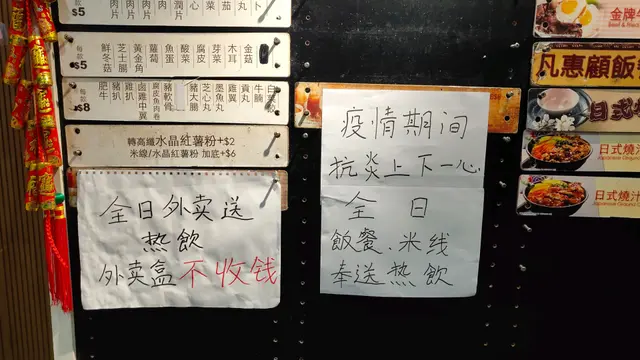 $5
鮮冬菇
芝士腸
黃金角
蘿蔔
魚蛋
酸菜
腐皮
芽菜
木耳
金菇
每款
$5
肥牛
豬扒
雞扒
鹵雞中翼
腐皮魚肉卷
豬軟骨
豬大腸
芝心丸
墨魚丸
雞翼
貢丸
牛腩
每款
$8
轉高纖水晶紅薯粉+$2
米線/水晶紅薯粉 加底+$6
全日外卖送
热飲
外卖盒不收钱
疫情期间
抗炎上下一心
全日
飯餐、米线
奉送热飲
金牌牛
凡惠顧飯
日式
日式燒汁
日式燒汁